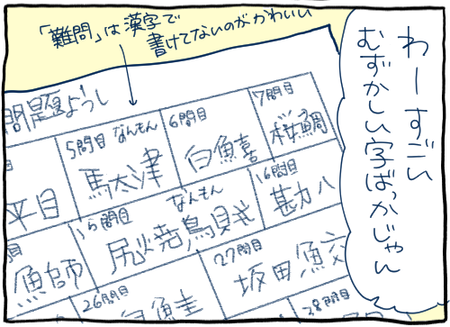 わーすごい
むずかしい字ばっかじゃん
「難問」は漢字で
書けてないのがかわいい
問題ようし
5問目 なんもん
馬太津
6問目
白鱚
7問目
桜鯛
平目
15問目 なんもん
尻焼鳥賊
16問目
勘八
鰤
26問目
27問目
坂田鮫